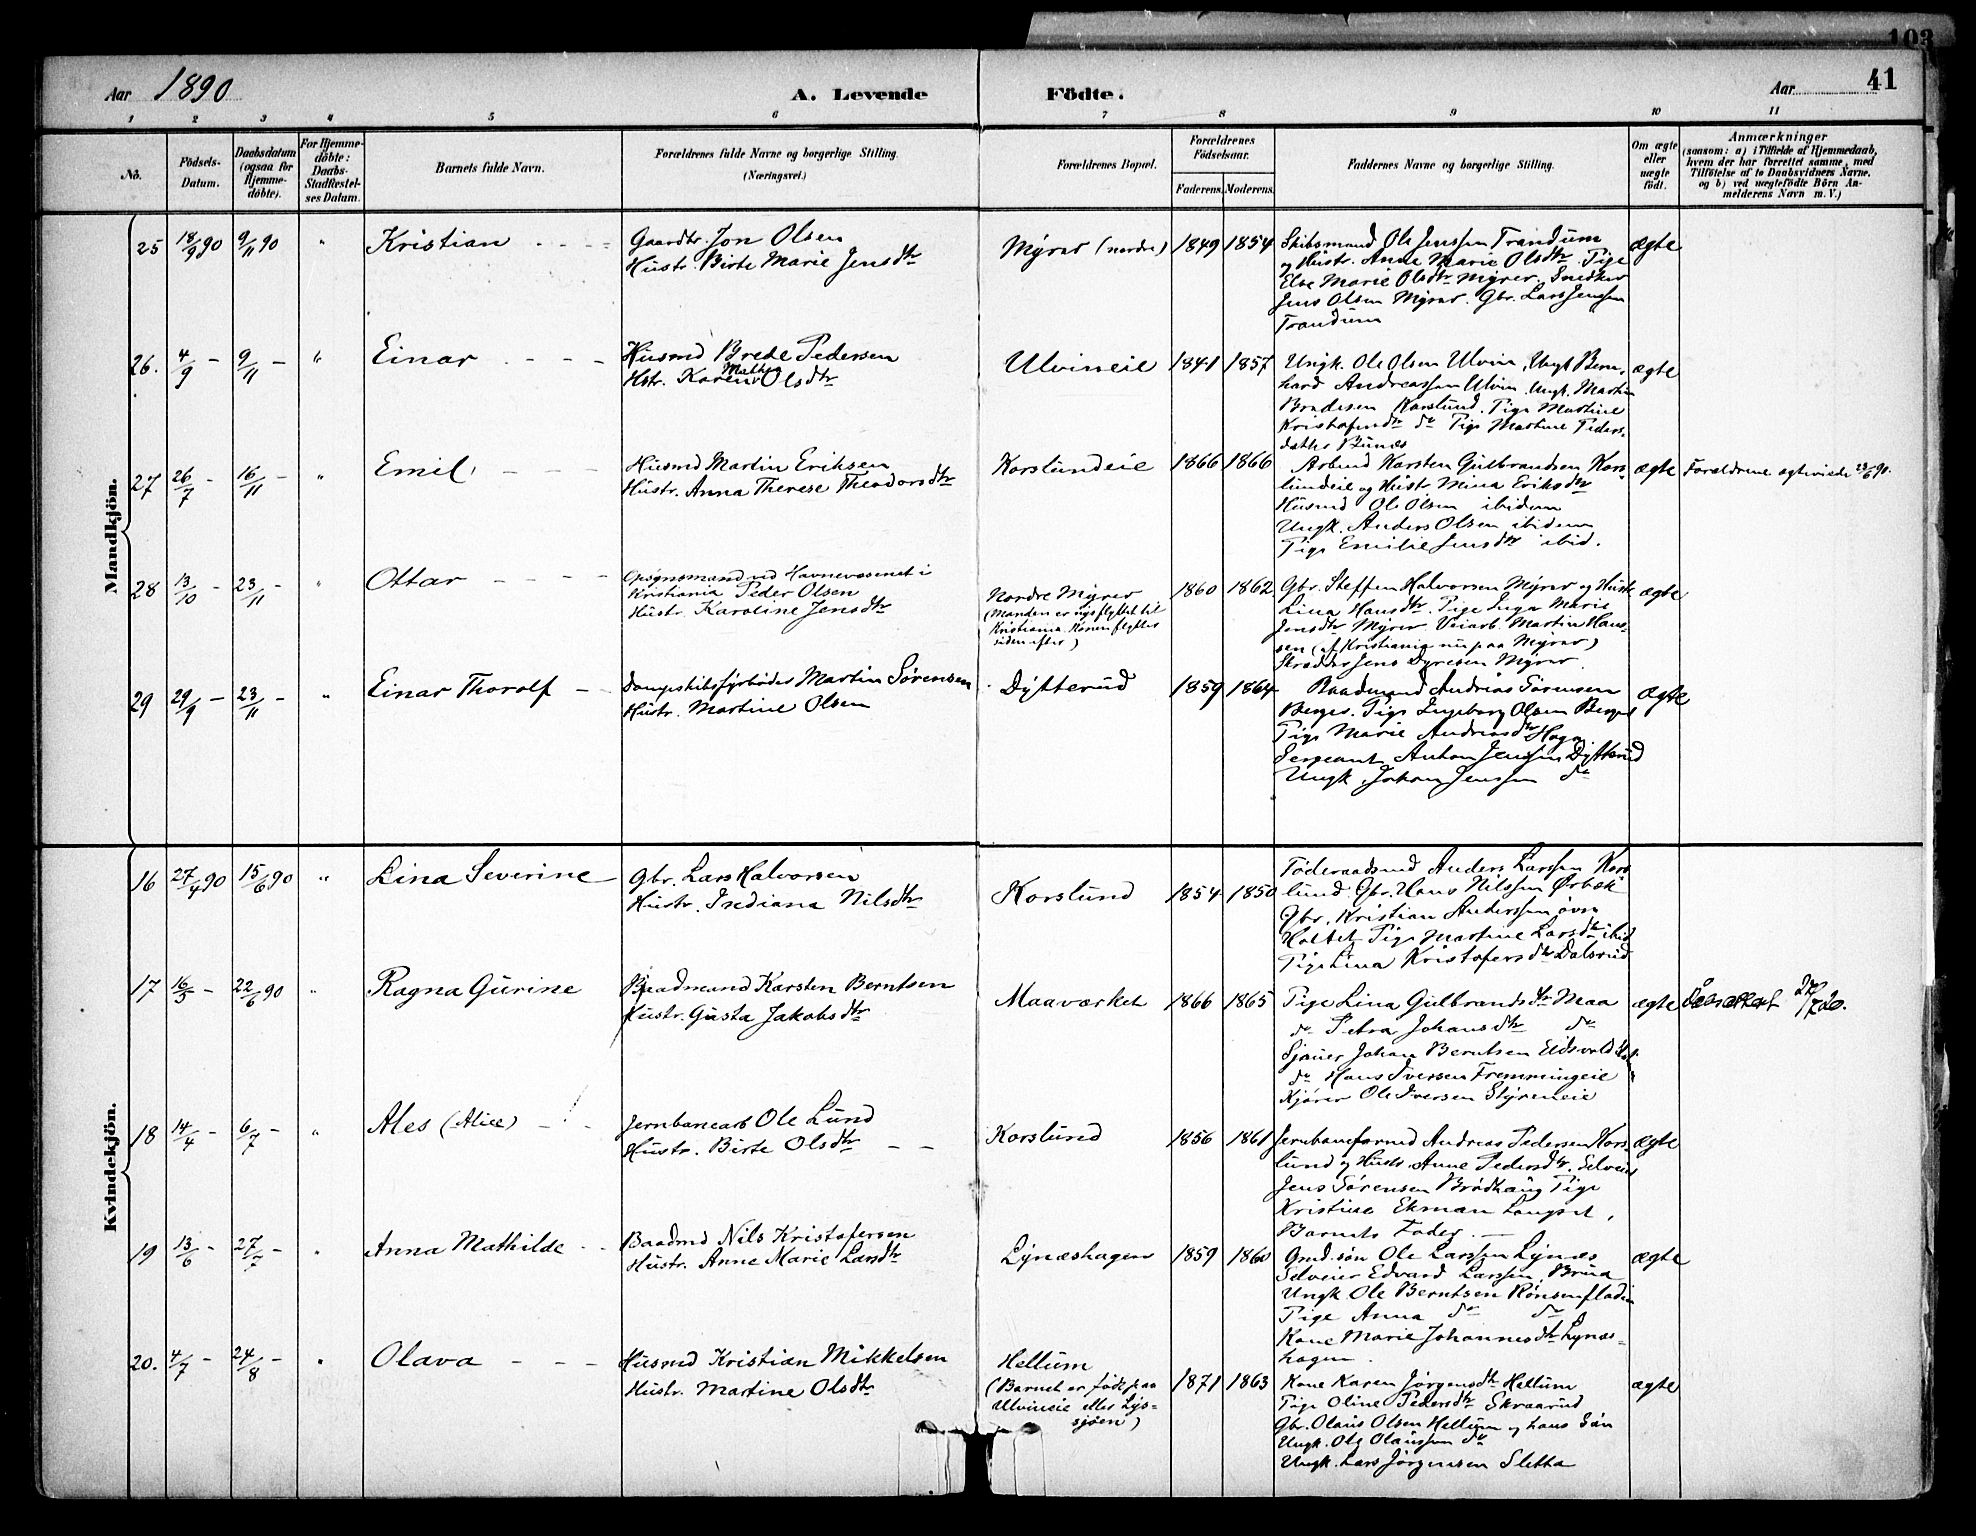 103
Aar 1890
A. Levende Födte.
Aar 41
1 2 3 4 5 6 7 8 9 10 11
No.
Födsels-Datum.
Daabsdatum (ogsaa for Hjemme-döbte).
For Hjemme-döbte: Daabs-Stadfæstel-ses Datum.
Barnets fulde Navn.
Forældrenes fulde Navne og borgerlige Stilling.
(Næringsvei.)
Forældrenes Bopæl.
Forældrenes Födselsaar.
Faderens. Moderens.
Faddernes Navne og borgerlige Stilling.
Om ægte eller uægte födt.
Anmærkninger
(saasom: a) i Tilfælde af Hjemmedaab,
hvem der har forrettet samme, med
Tilföielse af to Daabsvidners Navne,
og b) ved uægtefödte Börn An-
melderens Navn m. V.)
Mandkjön.
25 18/9 90 9/11 90 " Kristian
Gaardbr. Jon Olsen
Hustr. Birte Marie Jensdtr
Myrer (nordre) 1849 1854
Skibsmand Ole Jenssen Trandum
og Hustr. Anne Marie Olsdtr. Pige
Else Marie Olsdtr Myrer, Snedker
Jens Olsen Myrer. Gbr. Lars Jenssen
Trandum
ægte
26. 4/9 - 9/11 - " Einar
Husmd Brede Pedersen
Hstr. Karen Mathea Olsdtr
Ulvineie 1841 1857
Ungk. Ole Olsen Ulvin, Ungk Bern-
hard Andreassen Ulvin. Ungk. Martin
Bredesen Korslund. Pige Martine
Kristofersdtr do Pige Martine Peders-
datter Bunæs
ægte
27 26/7 - 16/11 - " Emil
Husmd Martin Eriksen
Hustr. Anna Therese Theodorsdtr
Korslundeie 1866 1866
Arbmd Karsten Gulbrandsen Kors-
lundeie og Hustr Mina Eriksdtr
Husmd Ole Olsen ibidem
Ungk. Anders Olsen ibidem
Pige Emilie Jensdtr ibid.
ægte Forældrene ægteviede 23/6 90.
28 13/10 - 23/11 - " Ottar
Opsynsmand ved Havnevæsenet i
Kristiania Peder Olsen
Hustr. Karoline Jensdtr
Nordre Myrer
(Manden er nys flyttet til
Kristiania. Konen flytter
siden efter)
1860 1862
Gbr. Steffen Halvorsen Myrer og Hustr
Lina Hansdtr. Pige Inga Marie
Jensdtr Myrer Veiarb. Martin Han-
sen (af Kristiania nu paa Myrer)
Skræder Jens Dyresen Myrer.
ægte
29 29/9 - 23/11 - " Einar Thorolf
Dampskibsfyrböder Martin Sørensen
Hustr. Martine Olsen
Dytterud 1859 1864
Baadmand Andreas Sørensen
Berger. Pige Ingeborg Olsen Berger
Pige Marie Andreasdtr Haga
Sergeant Anton Jenssen Dytterud
Ungk. Johan Jenssen do
ægte
Kvindekjön.
16 27/4 90 15/6 90 " Lina Severine
Gbr. Lars Halvorsen
Hustr. Indiana Nilsdtr
Korslund 1854 1850
Föderaadsmd Anders Larssen Kors-
lund Gbr. Hans Nilssen Ørbæk
Gbr. Kristian Anderssen øvre
Holtet Pige Martine Larsdtr ibid
Pige Lina Kristofersdtr Dalsrud
17 16/5 - 22/6 90 " Ragna Gurine
Baadmand Karsten Berntsen
Hustr. Gusta Jakobsdtr
Maaværket 1866 1865
Pige Lina Gulbrandsdtr Maa
do Petra Johansdtr do
Sjauer Johan Berntsen Eidsvold
do Hans Iversen Fremmingeie
Kjører Ole Iversen Styreneie
ægte Døbeattest 27/7 20.
18 14/4 - 6/7 - " Ales (Alice)
Jernbanearb Ole Lund
Hustr. Birte Olsdtr
Korslund 1856 1861
Jernbaneformd Andreas Pedersen Kors-
lund og Hustr. Anne Pedersdtr. Selveier
Jens Sørensen Brödhaug Pige
Kristine Ekman Langset,
Barnets Fader.
ægte
19 13/6 - 27/7 - " Anna Mathilde
Baadmd Nils Kristofersen
Hustr. Anne Marie Larsdtr
Lynæshagen 1859 1860
Grnd.søn Ole Larssen Lynæs
Selveier Edvard Larssen, Brua
Ungk Ole Berntsen Rönsenfladen
Pige Anna do do
Kone Marie Johannesdtr Lynæs-
hagen.
ægte
20. 4/7 - 24/8 - " Olava
Husmd Kristian Mikkelsen
Hustr. Martine Olsdtr.
Hellum
(Barnet er født paa
Ulvineie eller Lys-
sjøen)
1871 1863
Kone Karen Jørgensdtr Hellum
Pige Oline Pedersdtr Skraarud
Gbr. Olaus Olsen Hellum og hans Søn
Ungk. Ole Olaussen do
Ungk. Lars Jørgensen Sletta
ægte